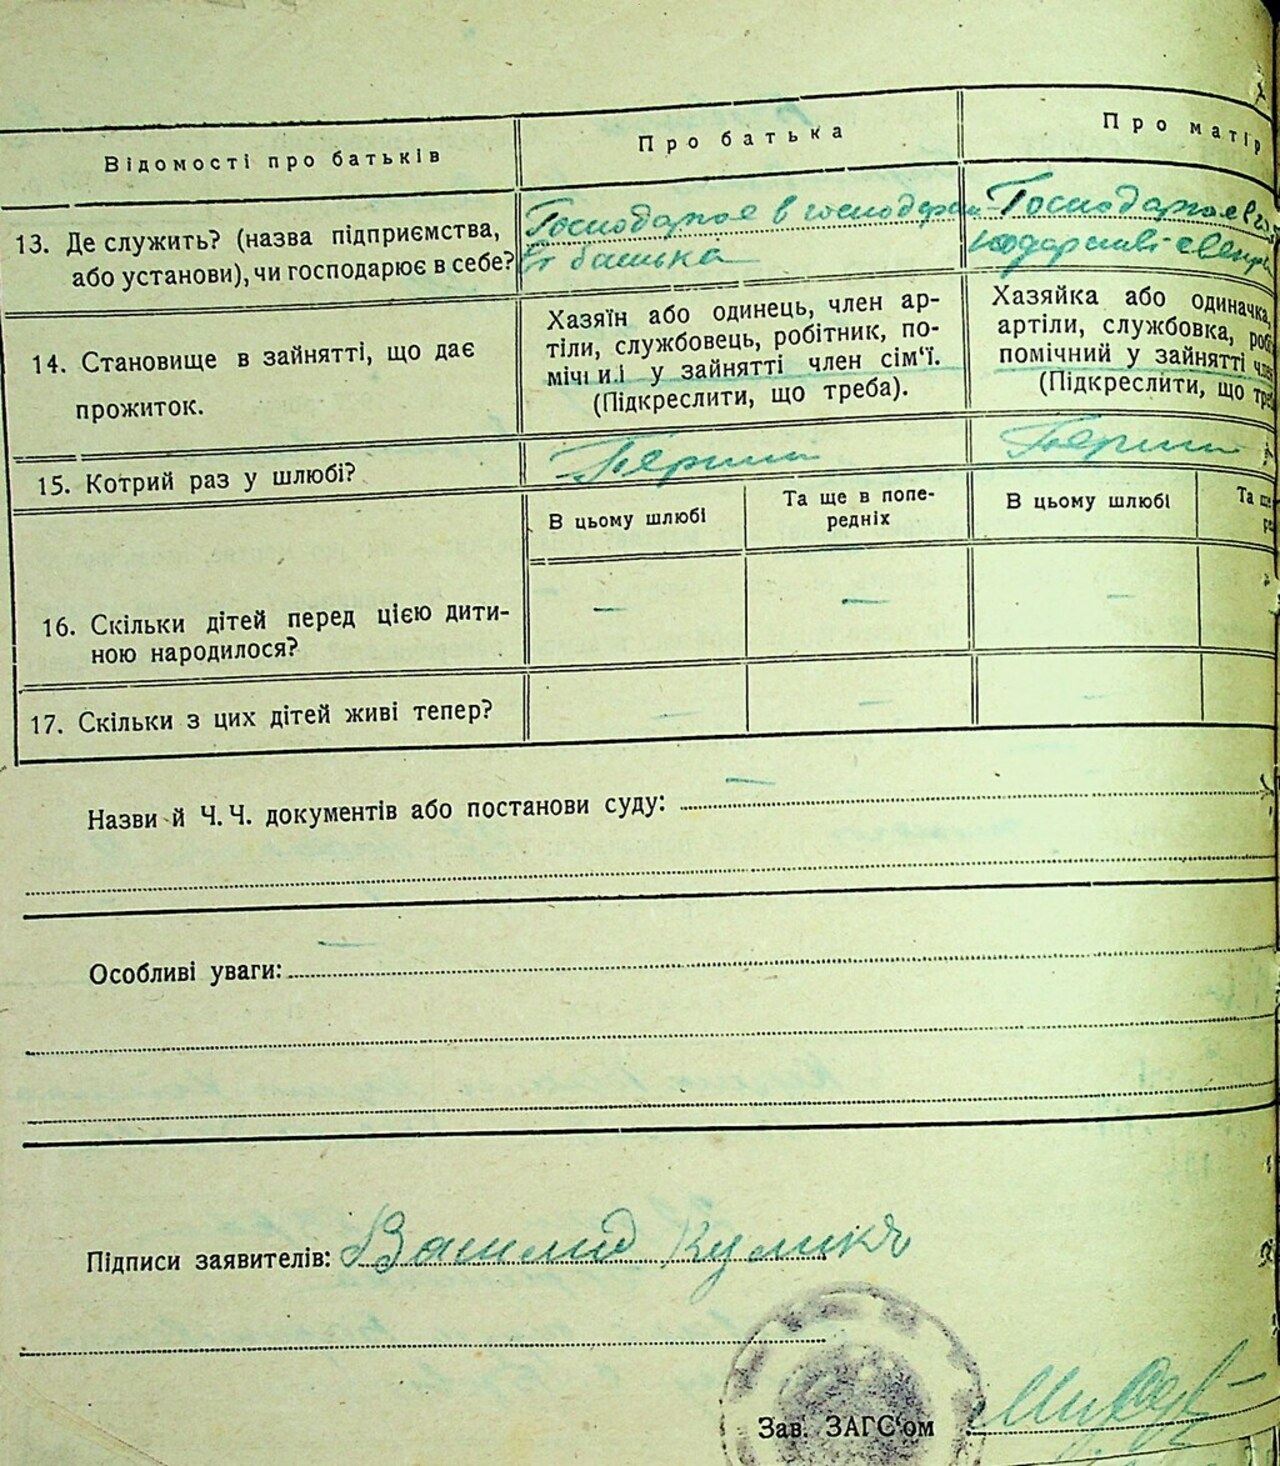 Відомості про батьків
Про батька
Про матір
13. Де служить? (назва підприємства,
або установи), чи господарює в себе?
Господарює в господарс-
ві батька
Господарює в гос
подарстві свекра
14. Становище в зайнятті, що дає
прожиток.
Хазяїн або одинець, член ар-
тіли, службовець, робітник, по-
мічний у зайнятті член сім'ї.
(Підкреслити, що треба).
Хазяйка або одиначка,
артіли, службовка, робі
помічний у зайнятті член
(Підкреслити, що треб
15. Котрий раз у шлюбі?
Перший
Перший
В цьому шлюбі
Та ще в попе-
редніх
В цьому шлюбі
Та ще
16. Скільки дітей перед цією дити-
ною народилося?
— — —
17. Скільки з цих дітей живі тепер?
— — —
Назви й Ч. Ч. документів або постанови суду: —
Особливі уваги: —
Підписи заявителів: Василид Кулика
Зав. ЗАГС'ом